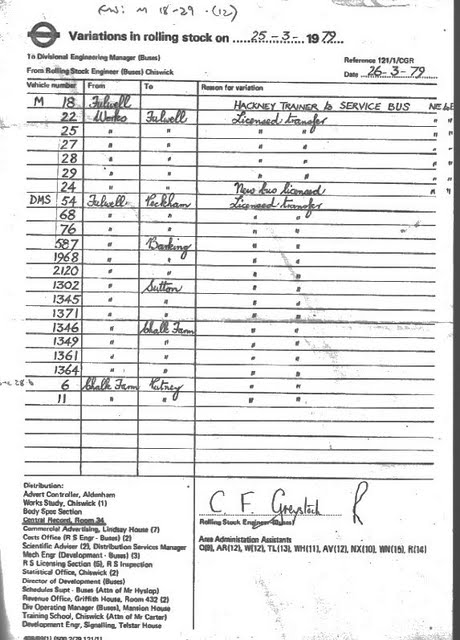 M 18-29-(12)
Variations in rolling stock on 25-3-1979
To Divisional Engineering Manager (Buses)
Reference 121/1/CGR
From Rolling Stock Engineer (Buses) Chiswick
Date 26-3-79
Vehicle number From To Reason for variation
M 18 Fulwell HACKNEY TRAINER to SERVICE BUS
22 Works Fulwell Licensed transfer " "
25 " " " " " "
27 " " " " "
28 " " " " " "
29 " " " " " "
24 " " New bus licensed " "
DMS 54 Fulwell Peckham Licensed transfer
68 " " " "
76 " " " "
587 " Barking " "
1968 " " " "
2120 " " " "
1302 " Sutton " "
1345 " " " "
1371 " " " "
1346 " Chalk Farm " "
1349 " " " "
1361 " " " "
1364 " " " "
6 Chalk Farm Putney " "
11 " " " "
Distribution:
Advert Controller, Aldenham
Works Study, Chiswick (1)
Body Spec Section
Central Record, Room 34
Commercial Advertising, Lindsay House (7)
Costs Office (R S Engr - Buses) (2)
Scientific Adviser (2), Distribution Services Manager
Mech Engr (Development - Buses) (3)
R S Licensing Section (5), R S Inspection
Statistical Office, Chiswick (2)
Director of Development (Buses)
Schedules Supt - Buses (Attn of Mr Hyslop)
Revenue Office, Griffith House, Room 432 (2)
Div Operating Manager (Buses), Mansion House
Training School, Chiswick (Attn of Mr Carter)
Development Engr, Signalling, Telstar House
C F Greystock R
Rolling Stock Engineer (Buses)
Area Administration Assistants
O(8), AR(12), W(12), TL(13), WH(11), AV(12), NX(10), WN(15), R(14)